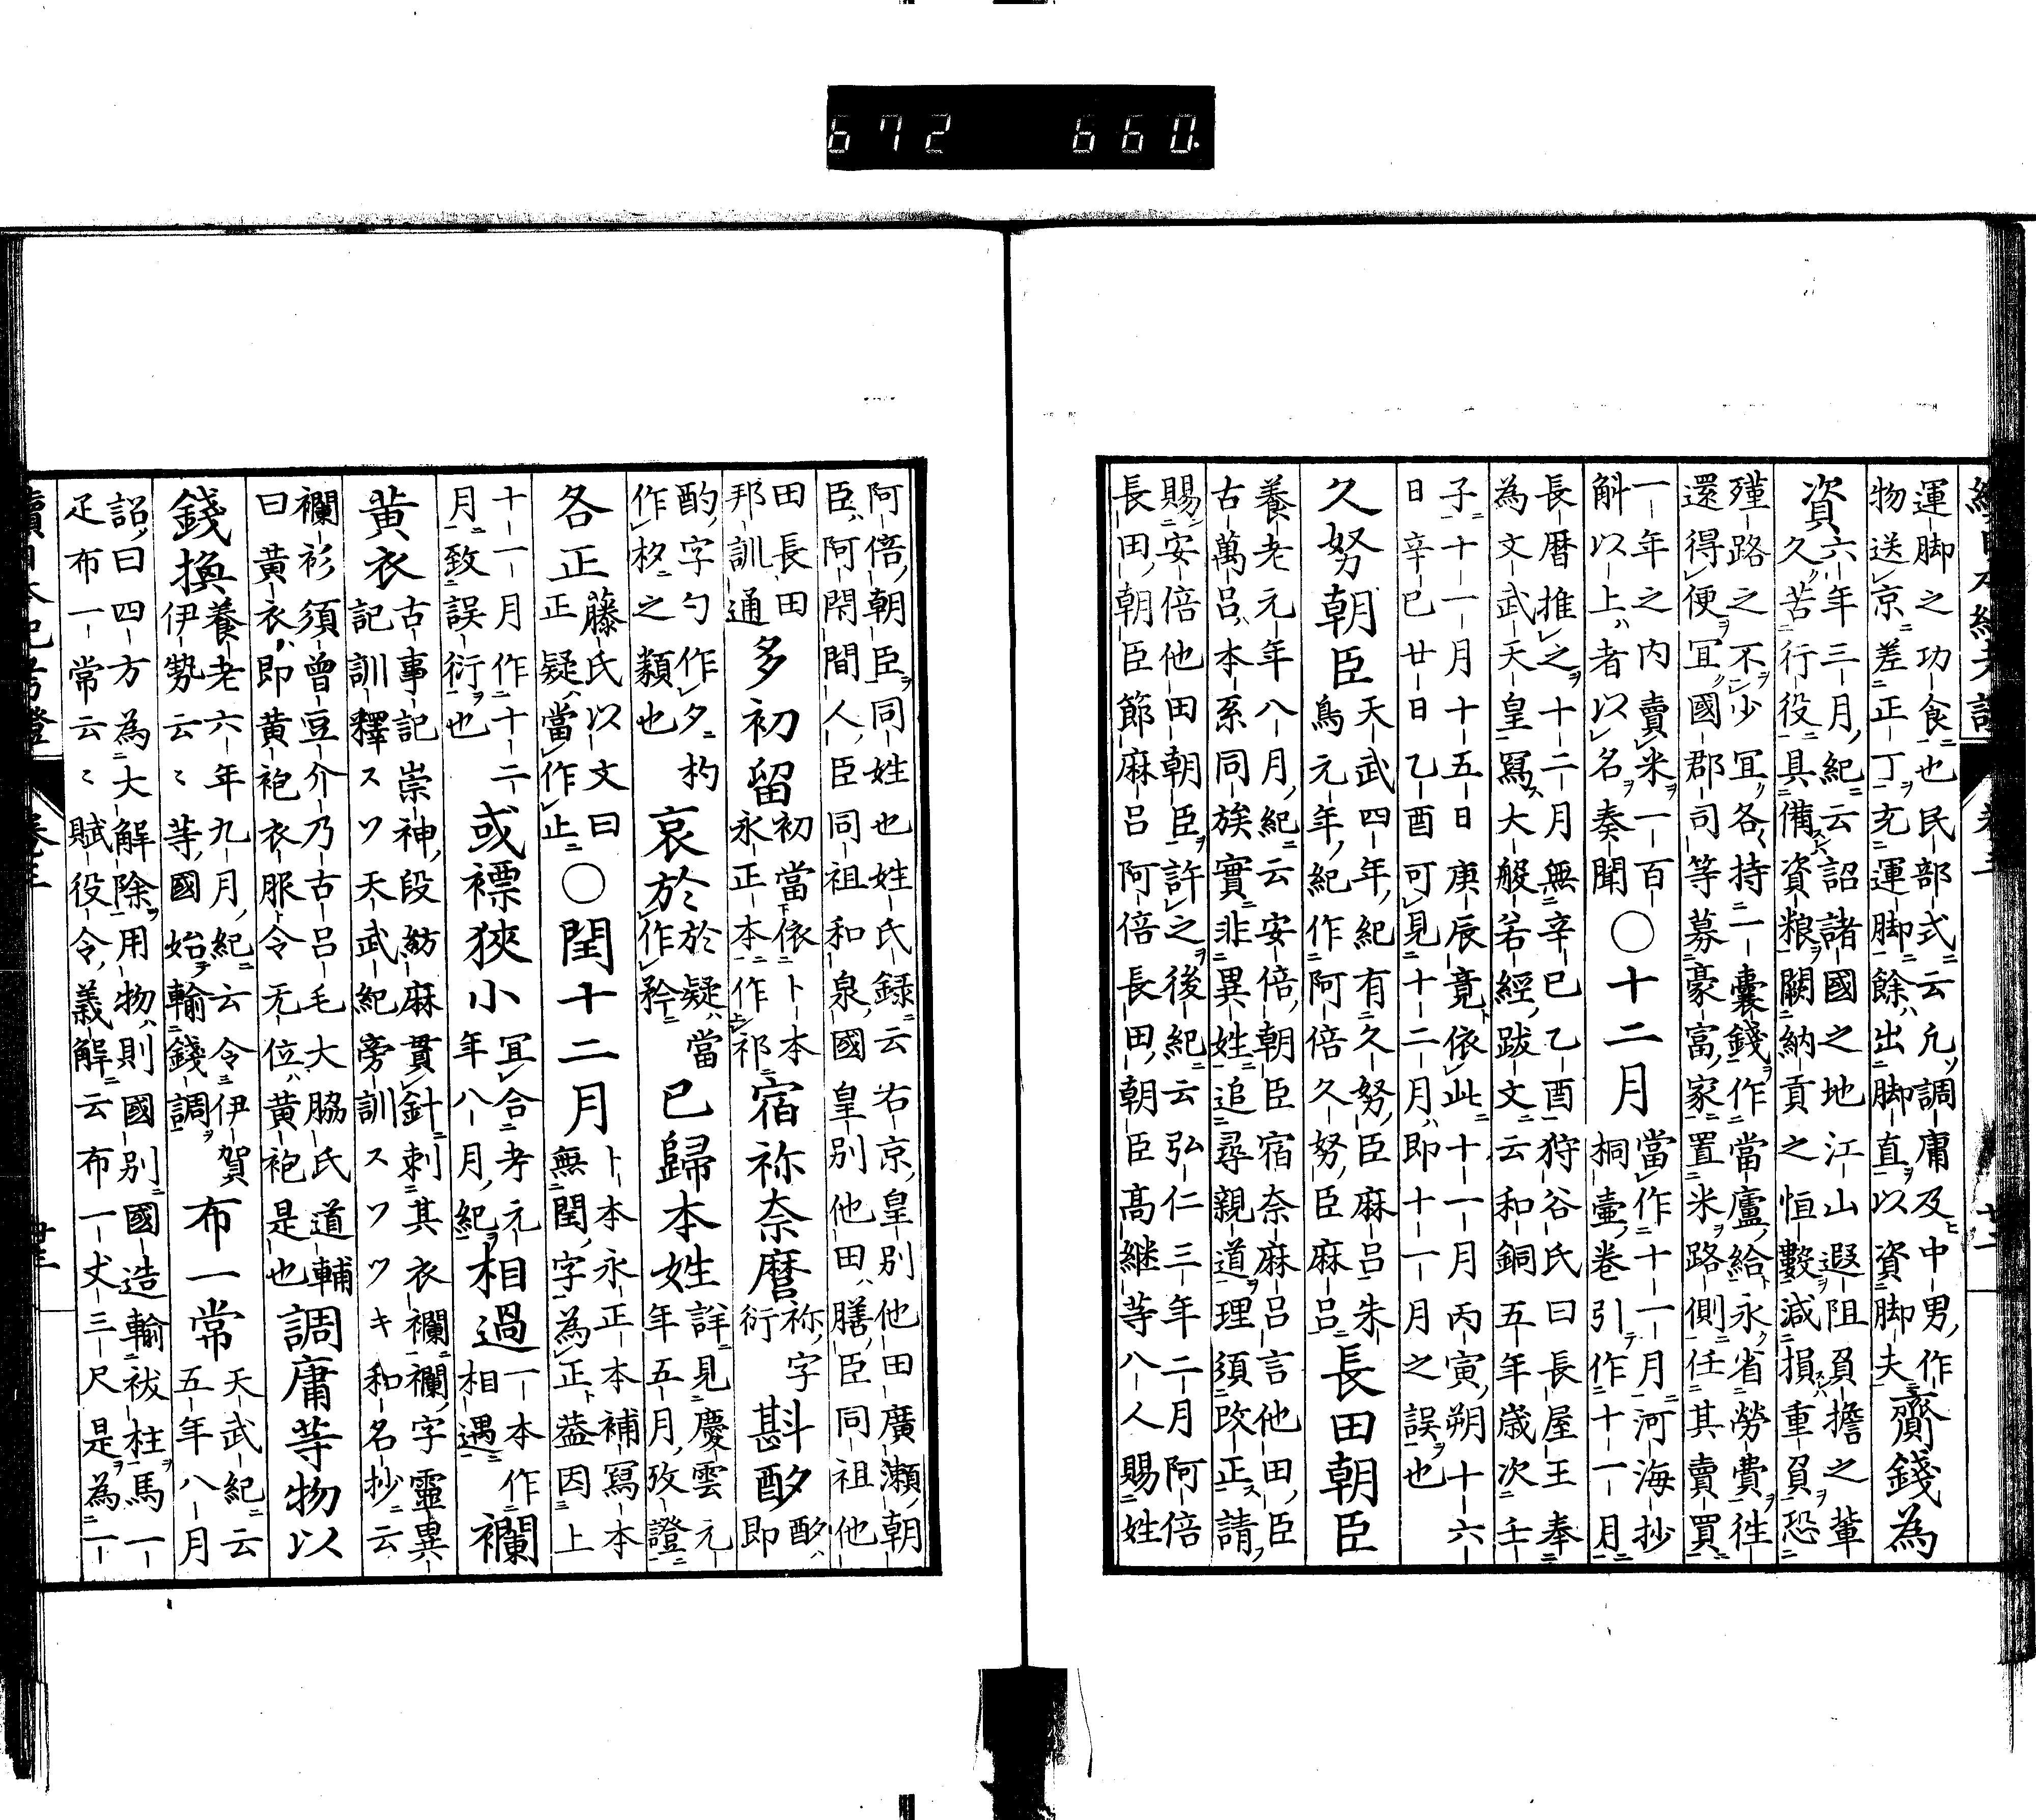 672 660
運脚之功食也民部式云凡調庸及中男作
物送京差正丁充運脚餘出脚直以資脚夫 齎錢為
資 六年三月紀云詔諸國之地江山遐阻負擔之輩
久苦行役具備資粮闕納貢之恒數減損重負恐
殣路之不少冝各持一囊錢作當盧給永省勞費徃
還得便冝國郡司等募豪富家置米路側任其賣買
一年之内賣米一百
斛以上者以名奏聞 〇十二月 當作十一月河海抄
桐壷卷引作十一月
長曆推之十二月無辛巳乙酉狩谷氏曰長屋王奉
為文武天皇寫大般若經跋文云和銅五年歳次壬
子十一月十五日庚辰竟依此十一月丙寅朔十六
日辛巳廿日乙酉可見十二月即十一月之誤也
久努朝臣 天武四年紀有久努臣麻呂朱
鳥元年紀作阿倍久努臣麻呂 長田朝臣
養老元年八月紀云安倍朝臣宿奈麻呂言他田臣
古萬呂本系同族實非異姓追尋親道理須改正請
賜安倍他田朝臣許之後紀云弘仁三年二月阿倍
長田朝臣節麻呂阿倍長田朝臣高継等八人賜姓
阿倍朝臣同姓也姓氏録云右京皇別他田廣瀬朝
臣阿閇間人臣同祖和泉國皇別他田膳臣同祖他
田長田
邦訓通 多初留 初當依卜本
永正本作祁 宿祢奈麿 祢字
衍 斟酘 酘即
酌字勺作夕杓
作杦之類也 哀於 於疑當
作矜 已歸本姓 詳見慶雲元
年五月攷證
各正 藤氏以文曰
正疑當作止 〇閏十二月 卜本永正本補寫本
無閏字為正蓋因上
十一月作十二
月致誤衍也 或褾狹小 冝合考元
年八月紀 相過 一本作
相遇 襴
黄衣 古事記崇神段紡麻貫針刺其衣襴襴字靈異
記訓釋スソ天武紀旁訓スソツキ和名抄云
襴衫須曾豆介乃古呂毛大脇氏道輔
曰黄衣即黄袍衣服令无位黄袍是也 調庸等物以
錢換 養老六年九月紀云令伊賀
伊勢云〻等國始輸錢調 布一常 天武紀云
五年八月
詔曰四方為大解除用物則國別國造輸祓柱馬一
疋布一常云〻賦役令義解云布一丈三尺是為一